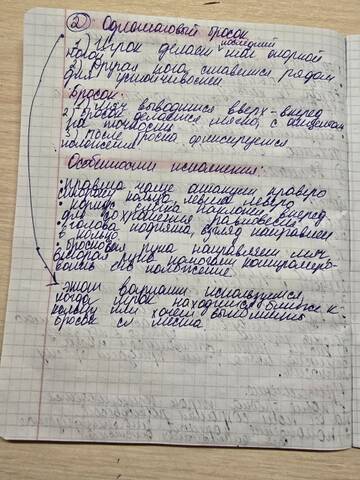 ② Одношаговый бросок
последний
1) Игрок делает или опорной
шаг
2) Другая нога ставится рядом
для устойчивости
Бросок:
1) Мяч выводится вверх-вперед
2) Бросок делается мягко, с акцентом
на точность
3) После броска фиксируется
положение
Особенности исполнения:
• правша чаще атакует правую
сторону кольца левша левую
• корпус слегка наклонён вперед
для сохранения равновесия
• голова поднята, взгляд направлен
в кольцо
• бросковая рука направляет мяч
вторая рука помогает контролиро-
вать его положение.
• этот вариант используется,
когда игрок находится ближе к
кольцу или хочет выполнить
бросок с места